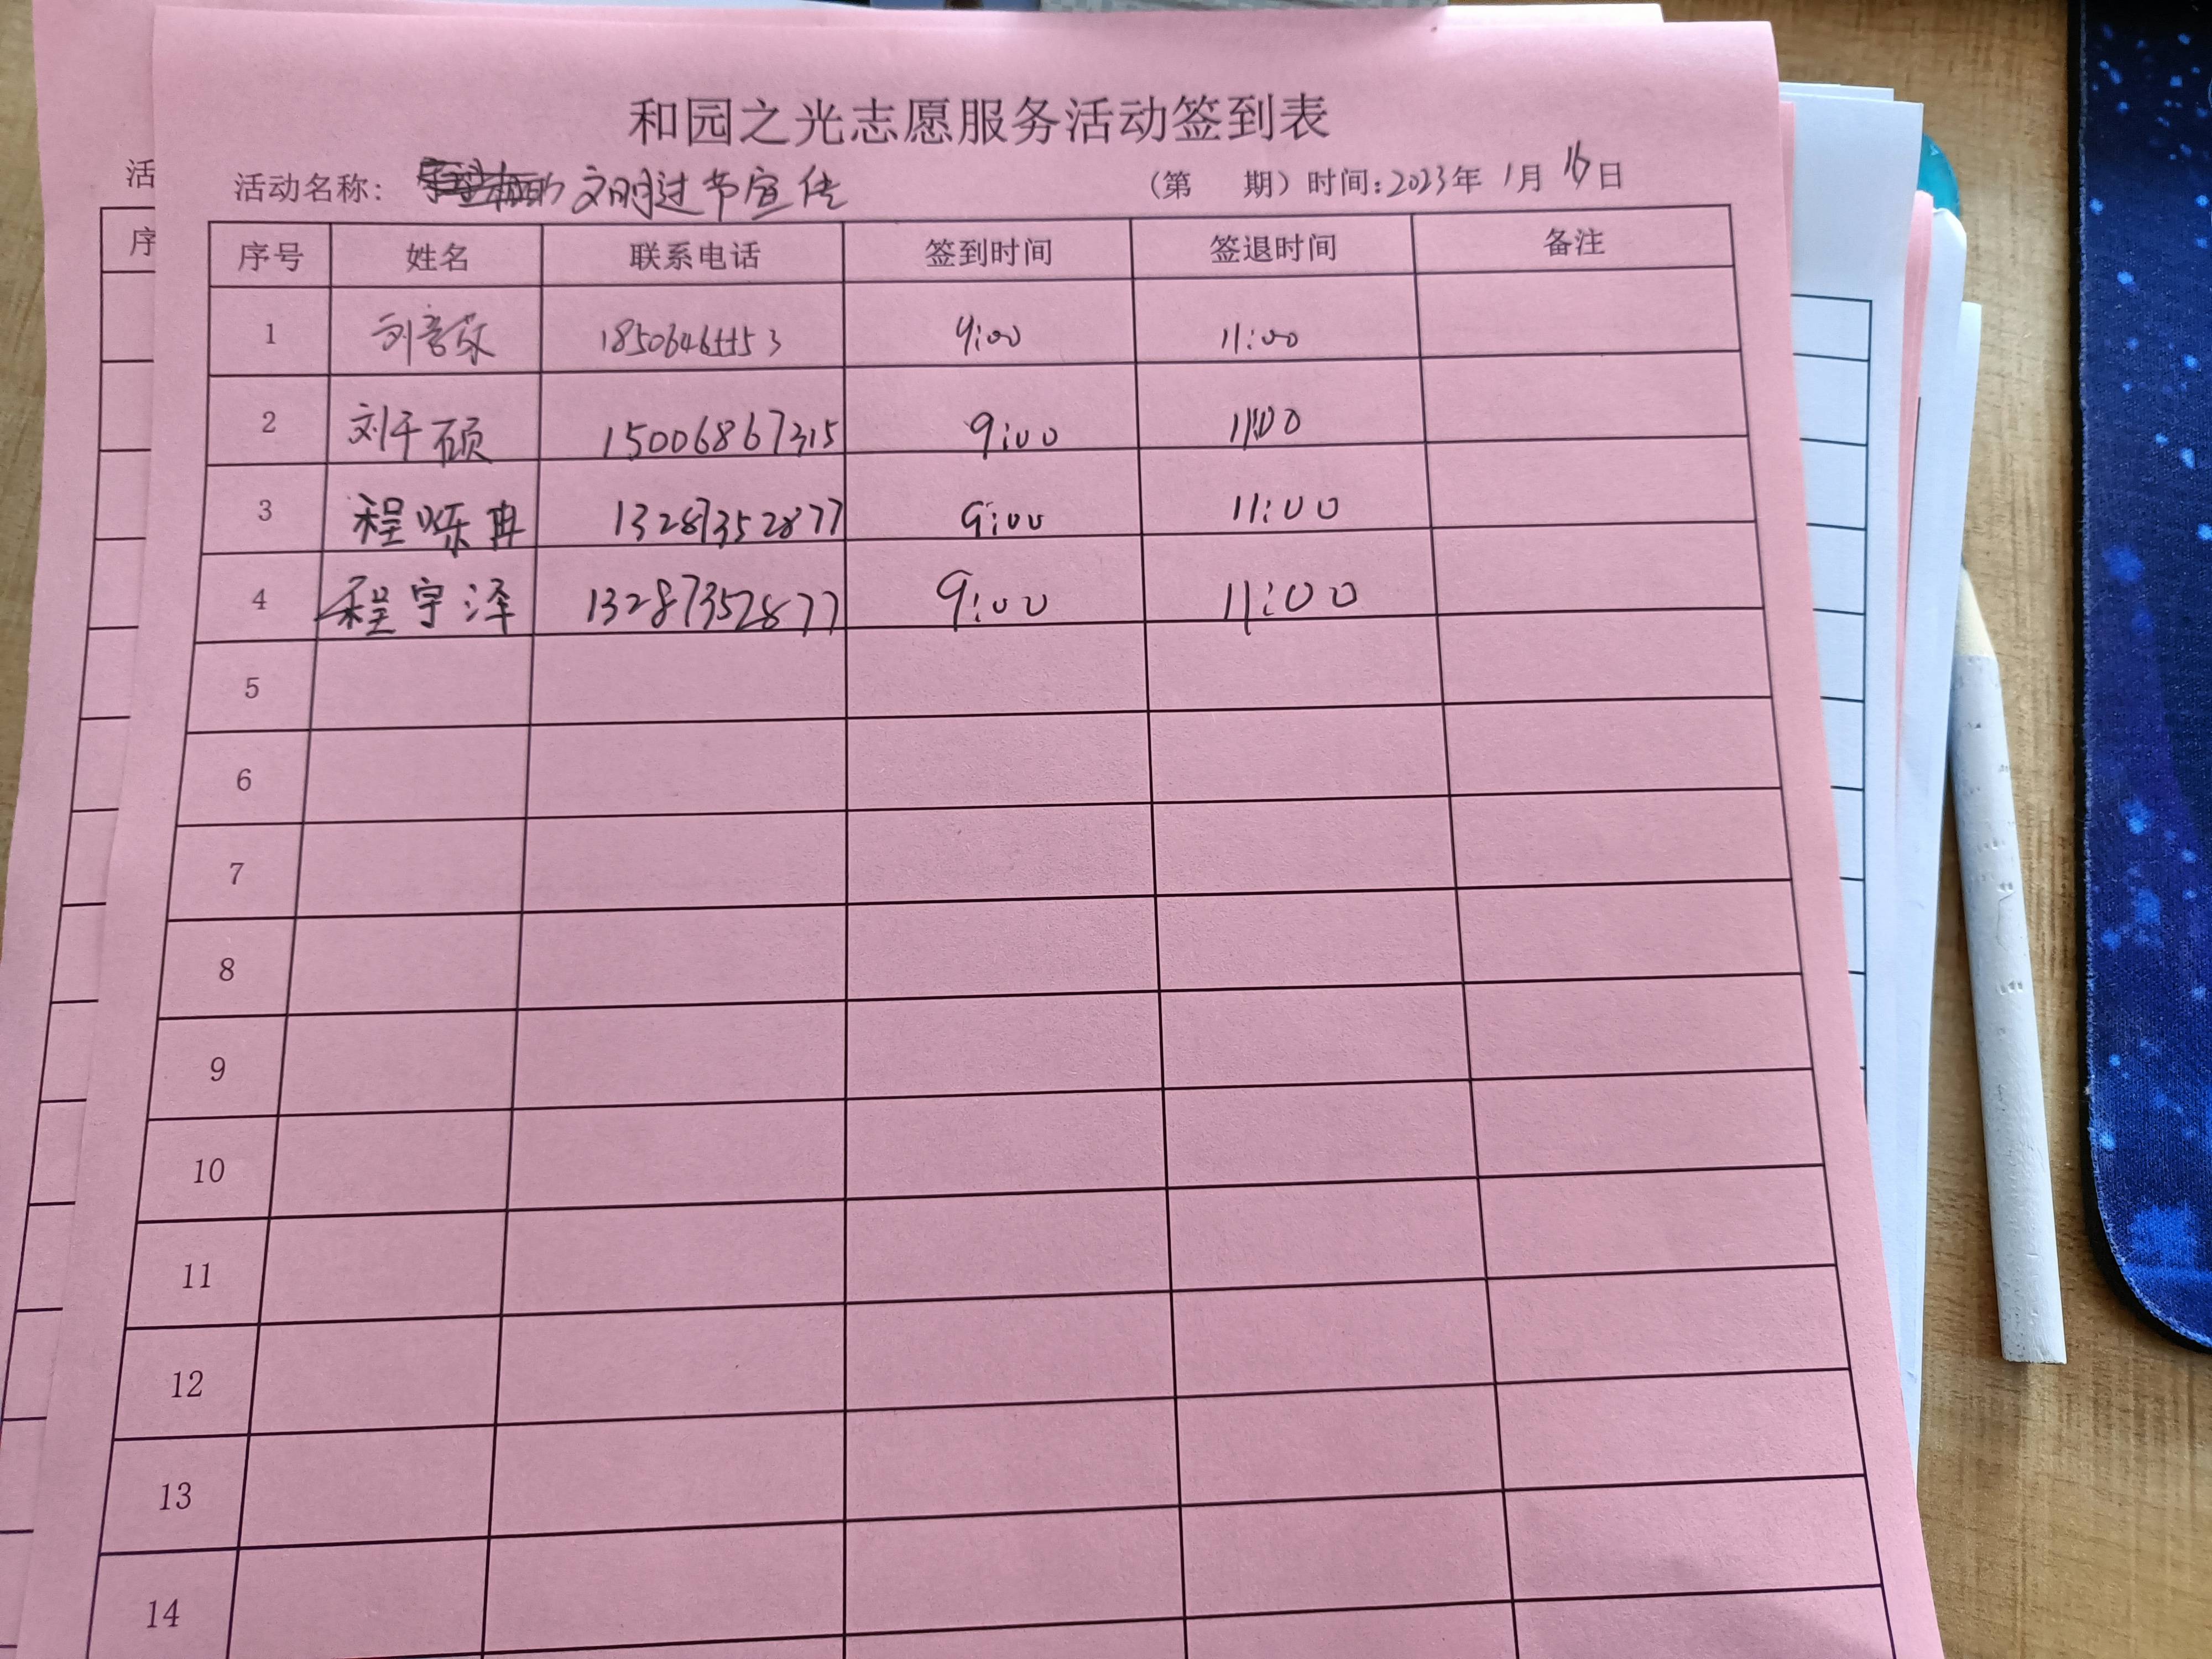 和园之光志愿服务活动签到表
活动名称: 文明过节宣传 (第 期) 时间:2023年 1月 16日
序号 姓名 联系电话 签到时间 签退时间 备注
1 9:00 11:00
2 刘千硕 15006867315 9:00 11:00
3 程烁冉 13287352877 9:00 11:00
4 程宇泽 13287352877 9:00 11:00
5
6
7
8
9
10
11
12
13
14
活
序